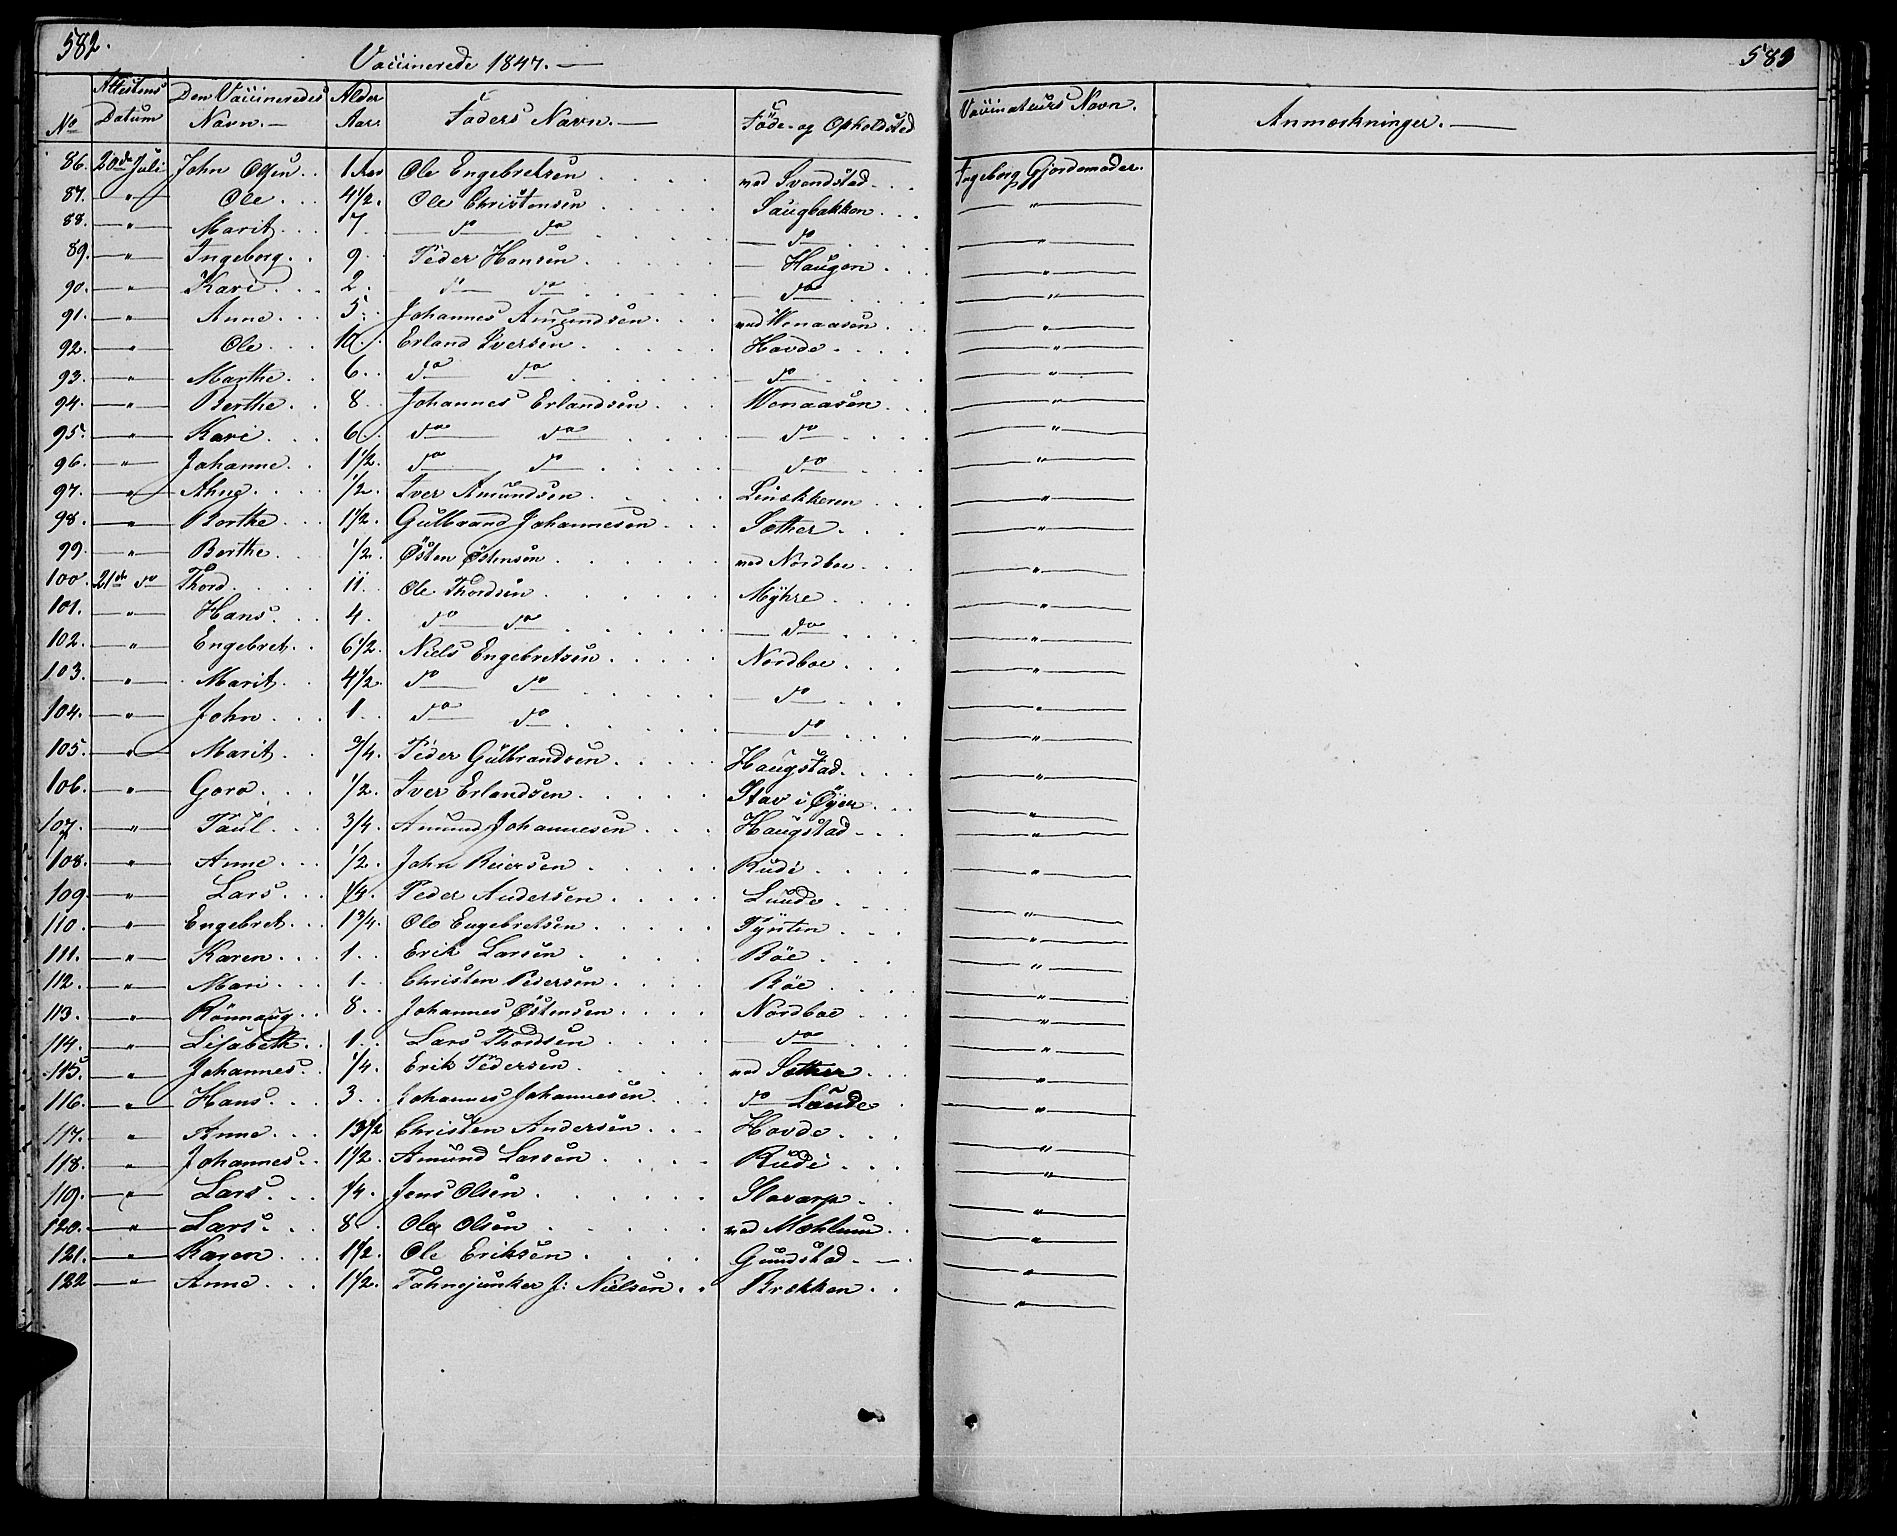 582.
Vaccinerede 1847. —
No Attestens Datum Den Vaccineredes Navn. — Alder Aar. Faders Navn. — Føde- og Opholdsted
86. 20de Juli John Olsen . . 1 Aar Ole Engebretsen . . . . ved Svendstad . . .
87. —"— Ole . . . 4 1/2. Ole Christensen . . . . . Haugbakken . . .
88. —"— Marit . . . 7. — do — do . . . . — do — . . .
89. —"— Ingeborg . . 9 . . Peder Hansen . . . . . — Haugen . . .
90. —"— Kari . . . 2 . — do — do . . . . . — do . . . .
91. —"— Anne . . . 5 . . Johannes Amundsen . . . ved Wenaasen . . .
92. —"— Ole . . . 10 . . Erland Iversen . . . . . Hovde . . . .
93. —"— Marthe . . 6 . . do — do . . . . . — do — . . . .
94. —"— Berthe . . 8 . . Johannes Erlandsen . . . Wenaasen . . .
95. —"— Kari . . . 6 . . do — do . . . . — do — . . . .
96. —"— Johanne . . 1 1/2. do — do . . . . . — do — . . . .
97. —"— Ahne . . . . 1/2. Iver Amundsen . . . . . Linækkeren . . .
98. —"— Berthe . . . 1 1/2. Gulbrand Johannesen . . . Sæther . . .
99. —"— Berthe . . . 1/2. Östen Östensen . . . . . . ved Nordboe . . .
100. 21de do Thord . . . . 11. Ole Thordsen . . . . . . Myhre . . . .
101. —"— Hans . . . 4. do — do . . . . . . — do — . . . .
102. —"— Engebret . . 6 1/2. Niels Engebretsen . . . . . Nordboe . . .
103. —"— Marit . . 4 1/2. do — do . . . . . — do . . .
104. —"— John . . . 1 . . do — do . . . . . — do . . .
105. —"— Marit . . 3/4. Peder Gulbrandsen . . . . . Haugstad . . . .
106. —"— Goro . . . 1/2. Iver Erlandsen . . . . . Stav i Øyer . . .
107. —"— Paul . . . 3/4. Amund Johannesen . . . Haugstad . . .
108. —"— Anne . . . 1/2. John Reiersen . . . . . Rudi . . . .
109. —"— Lars . . . 1/4. Peder Andersen . . . . . Lunde . . . .
110. —"— Engebret . . . 1 3/4. Ole Engebretsen . . . . . Tynten . . .
111. —"— Karen . . . 1 . . Erik Larsen . . . . Böe . . .
112. —"— Mari . . . 1 . . Christen Pedersen . . . . Böe . . . .
113. —"— Rönnaug . . 8 . . Johannes Östensen . . . . Nordboe . . .
114. —"— Lisabeth . . 1 . . Lars Thordsen . . . . — do — . . .
115. —"— Johannes . . 1/4. Erik Pedersen . . . . ved Sæther . . .
116. —"— Hans . . . 3 . . Johannes Johannesen . . . do Lunde .
117. —"— Anne . . . 13 1/2 Christen Andersen . . . Hovde . . .
118. —"— Johannes . . 1 1/2. Amund Larsen . . . . Rudi . . .
119. —"— Lars . . . 1/4. Jens Olsen . . . . . . Slovarp . .
120. —"— Lars . . . 8 . . Ole Olsen . . . . . . ved Mæhlum . .
121. —"— Karen . . . 1 1/2. Ole Eriksen . . . . Gundstad . — .
122 —"— Anne . . . 1 1/2. Fahnejunker J: Nielsen . . Brækken . .
583
Vaccinateurs Navn. Anmærkninger. —
Ingeborg Gjordemoder.